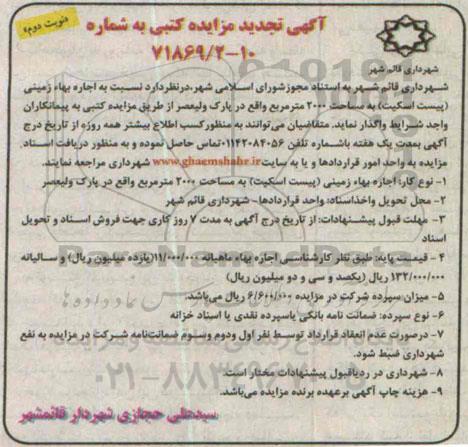 «نوبت دوم»
آگهی تجدید مزایده کتبی به شماره
۷۱۸۶۹/۲-۱۰
شهرداری قائم شهر
شهرداری قائم شهر به استناد مجوزشورای اسلامی شهر،درنظردارد نسبت به اجاره بهاء زمینی
(پیست اسکیت) به مساحت ۲۰۰۰ مترمربع واقع در پارک ولیعصر از طریق مزایده کتبی به پیمانکاران
واجد شرایط واگذار نماید. متقاضیان می‌توانند به منظورکسب اطلاع بیشتر همه روزه از تاریخ درج
آگهی بمدت یک هفته باشماره تلفن ۰۱۱۴۲۰۸۴۰۵۶تماس حاصل نموده و به منظور دریافت اسناد
مزایده به واحد امور قراردادها و یا به سایت www.ghaemshahr.ir شهرداری مراجعه نمایند.
۱- نوع کار: اجاره بهاء زمینی (پیست اسکیت) به مساحت ۲۰۰۰ مترمربع واقع در پارک ولیعصر
۲- محل تحویل واخذاسناد: واحد قراردادها- شهرداری قائم شهر
۳- مهلت قبول پیشنهادات: از تاریخ درج آگهی به مدت ۷ روز کاری جهت فروش اسناد و تحویل
اسناد
۴- قیمت پایه: طبق نظر کارشناسی اجاره بهاء ماهیانه ۱۱/۰۰۰/۰۰۰(یازده میلیون ریال) و سالیانه
۱۳۲/۰۰۰/۰۰۰ ریال (یکصد و سی و دو میلیون ریال)
۵- میزان سپرده شرکت در مزایده ۶/۶۰۰/۰۰۰ ریال می‌باشد.
۶- نوع سپرده: ضمانت نامه بانکی یاسپرده نقدی یا اسناد خزانه
۷- درصورت عدم انعقاد قرارداد توسط نفر اول ودوم وسوم ضمانت‌نامه شرکت در مزایده به نفع
شهرداری ضبط شود.
۸- شهرداری در ردیاقبول پیشنهادات مختار است.
۹- هزینه چاپ آگهی برعهده برنده مزایده می‌باشد.
۰۲۱-۸۸۳۴۹۶۷۰-۵
سیدعلی حجازی شهردار قائمشهر